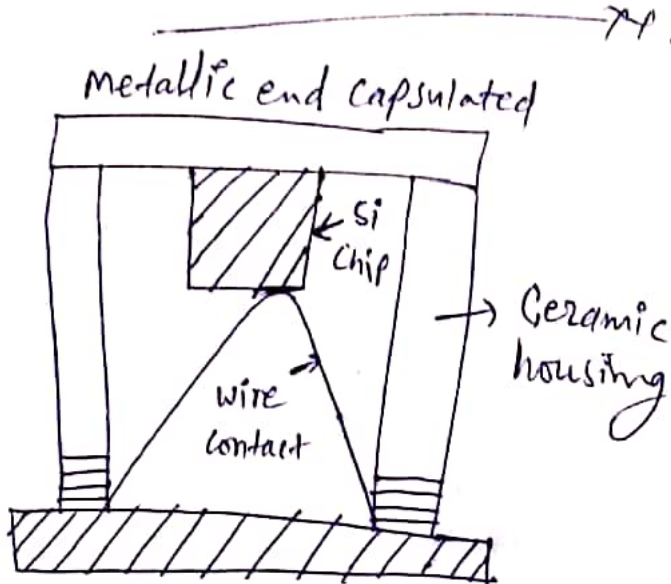 metallic end capsulated
Si
Chip
Ceramic
housing
wire
contact